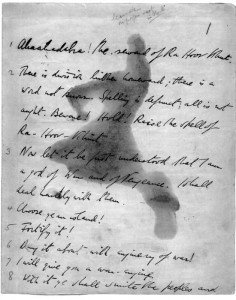 1
1 Abrahadabra! the reward of Ra Hoor Khut.
2 There is division hither homeward; there is a
word not known. Spelling is defunct; all is not
aught. Beware! Hold! Raise the spell of
Ra-Hoor-Khuit
3 Now let it be first understood that I am
a god of War and of Vengeance. I shall
deal hardly with them.
4 Choose ye an island!
5 Fortify it!
6 Dung it about with enginery of war!
7 I will give you a war-engine.
8 With it ye shall smite the peoples and